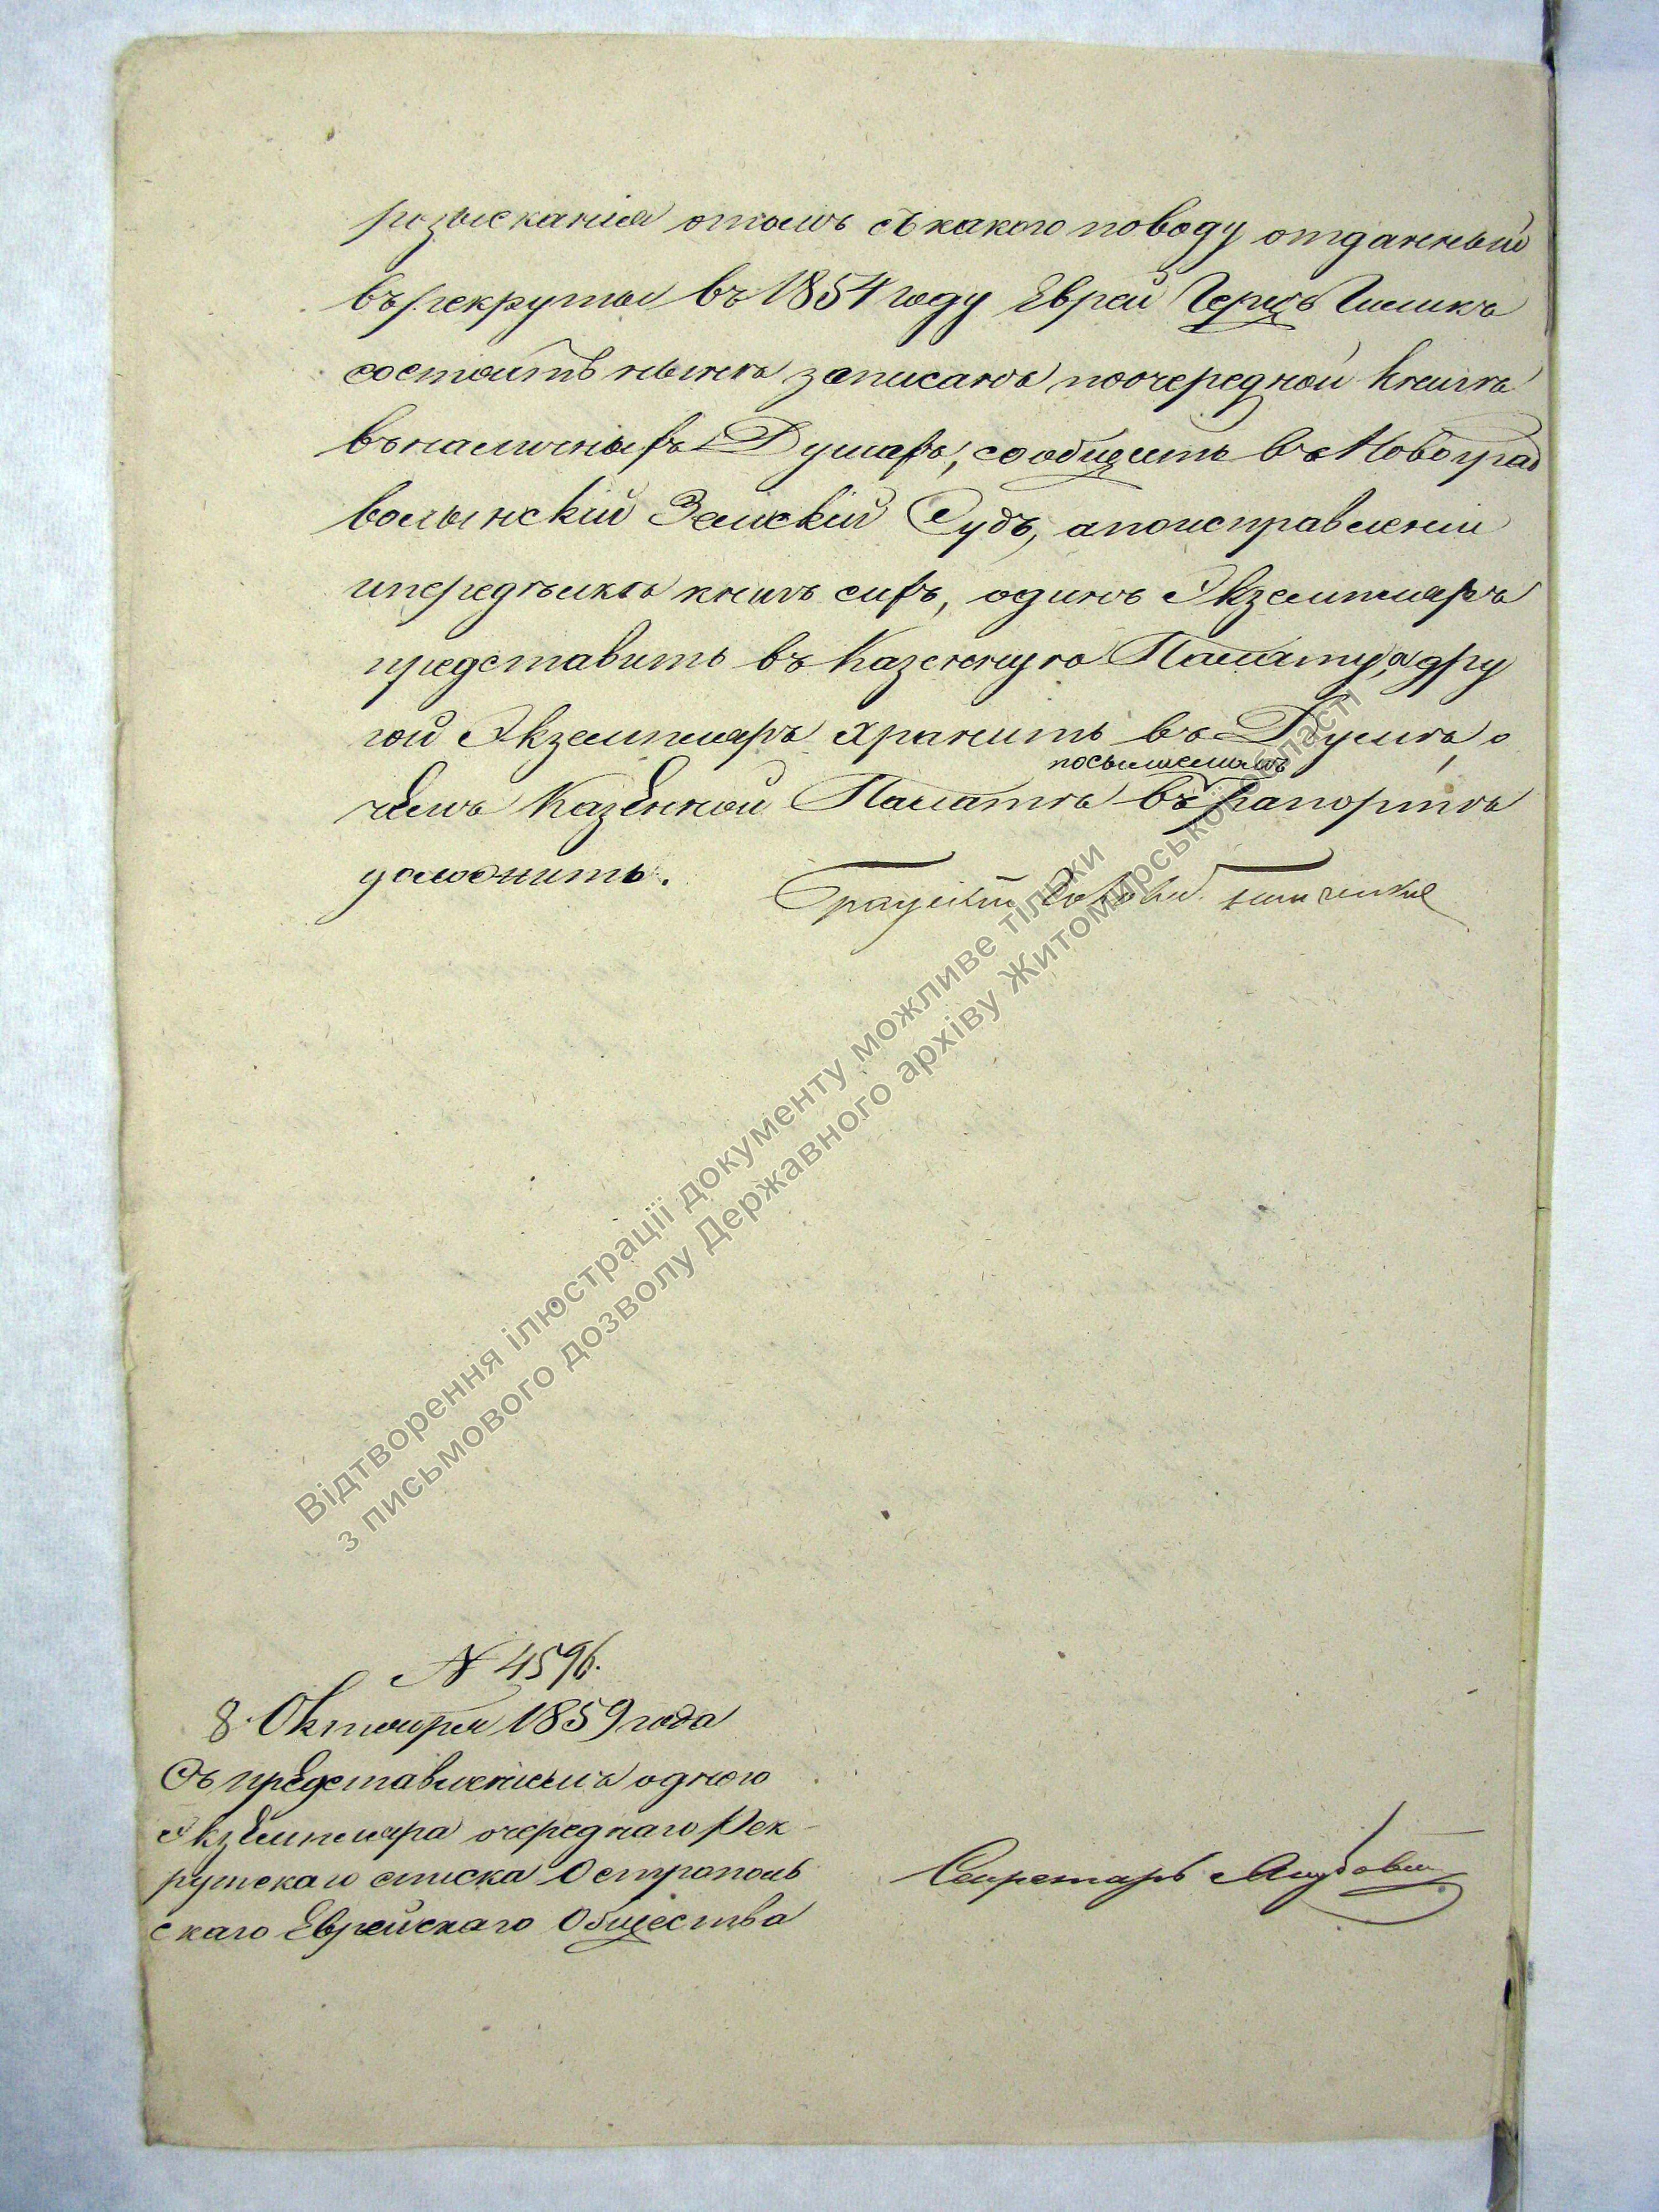 розысканія отомъ съ какого поводу отданный
въ рекруты въ 1854 году Еврей Герцъ Гиликъ
состоитъ нынѣ записанъ поочередной книгѣ
вналичныхъ Душахъ, сообщить въ Новоград
волынскій Земскій Судъ, апоисправленіи
ипередѣлкѣ книгъ сихъ, одинъ Экземпляръ
представить въ Казенную Палату, а дру
гой Экземпляръ хранить въ Думѣ, о
посылаемомъ
чемъ Казенной Палатѣ въ рапортѣ
доложить.
N 4596.
8 Октября 1859 года
Съ представленіемъ одного
Экземпляра очереднаго Рек
рутскаго списка Острополь
скаго Еврейскаго Общества
Секретарь
Відтворення ілюстрації документу можливе тільки
з письмового дозволу Державного архіву Житомирської області